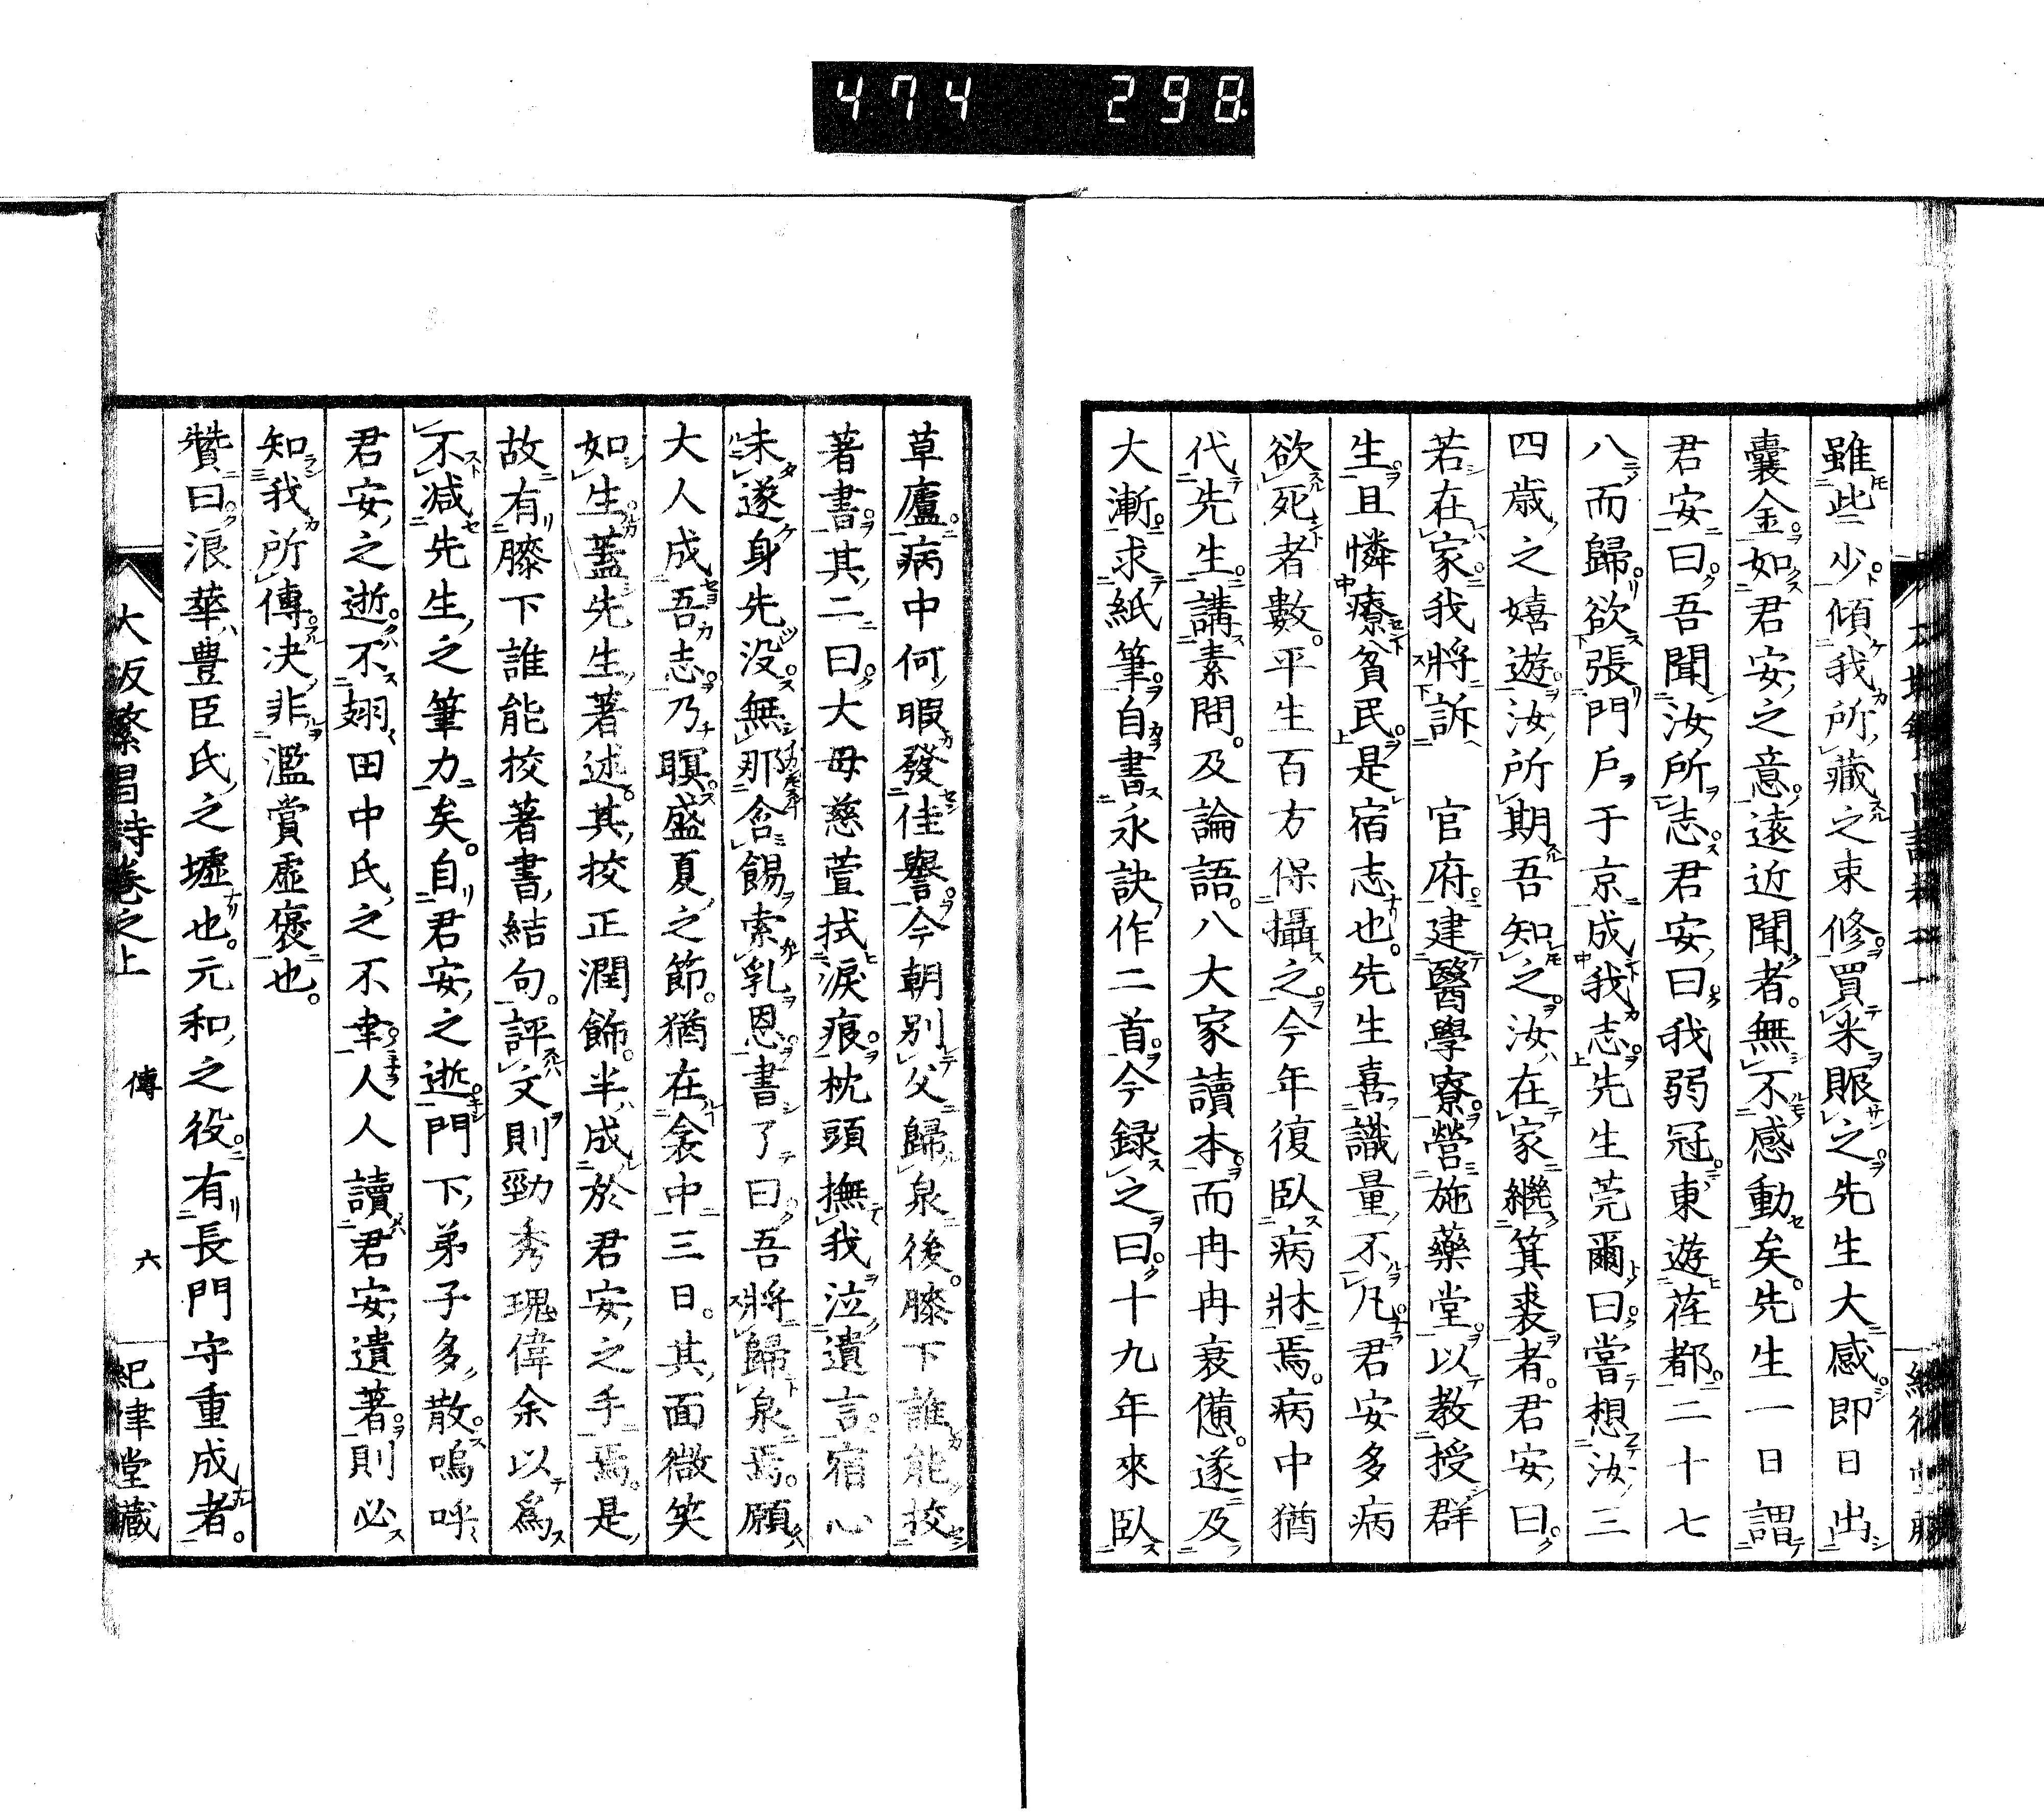 474 298
雖些少傾我所藏之束修買米賑之先生大感即日出
囊金如君安之意遠近聞者無不感動矣先生一日謂
君安曰吾聞汝所志君安曰我弱冠東遊荏都二十七
八而歸欲張門戶于京成我志先生莞爾曰嘗想汝三
四歲之嬉遊汝所期吾知之汝在家繼箕裘者君安曰
若在家我將訴 官府建醫學寮營施藥堂以教授群
生且憐療貧民是宿志也先生喜識量不凡君安多病
欲死者數平生百方保攝之今年復臥病牀焉病中猶
代先生講素問及論語八大家讀本而冉冉衰憊遂及
大漸求紙筆自書永訣作二首今録之曰十九年來臥
草廬病中何暇發佳譽今朝別父歸泉後膝下誰能挍
著書其二曰大母慈萱拭淚痕枕頭撫我泣遺言宿心
未遂身先没無那含餳索乳恩書了曰吾將歸泉焉願
大人成吾志乃瞑盛夏之節猶在衾中三日其面微笑
如生蓋先生著述其挍正潤飾半成於君安之手焉是
故有膝下誰能挍著書結句評文則勁秀瑰偉余以爲
不减先生之筆力矣自君安之逝門下弟子多散嗚呼
君安之逝不翅田中氏之不幸人人讀君安遺著則必
知我所傳决非濫賞虛褒也
贊曰浪華豊臣氏之墟也元和之役有長門守重成者
大阪繁昌詩卷之上 傳 六 紀律堂藏